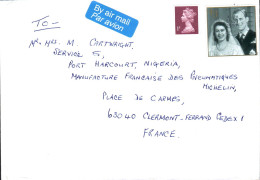 By air mail
Par avion
TO -
MR. MRS M. CARTWRIGHT,
SERVICE
PORT HARCOURT, NIGERIA,
MANUFACTURE FRANÇAISE DES PNEUMATIQUES
MICHELIN,
PLACE DE CARMES,
63040 CLERMONT-FERRAND CEDEX 1
FRANCE.